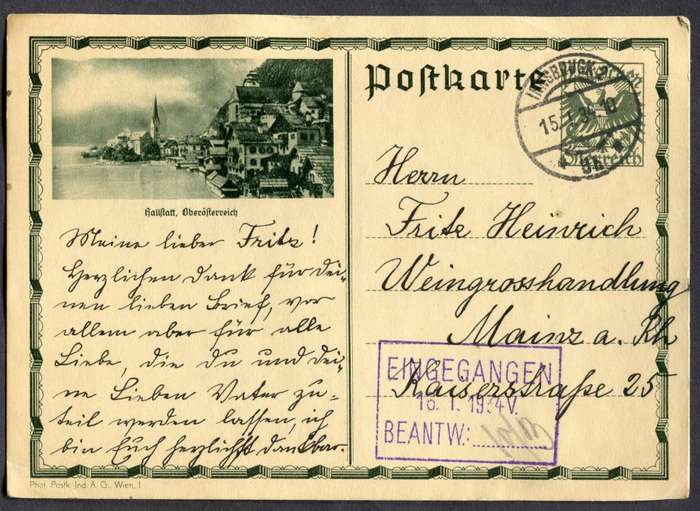 Postkarte
INNSBRUCK
15.I.34 10
Österreich
Hallstatt, Oberösterreich
Meine lieber Fritz!
Herzlichen Dank für dei-
nen lieben Brief, vor
allem aber für alle
Liebe, die du und dei-
ne Lieben Vater zu-
teil werden lassen, ich
bin Euch herzlichst dankbar.
Herrn
Fritz Heinrich
Weingrosshandlung
Mainz a. Rh
Kaiserstraße 25
EINGEGANGEN
16. I. 1934
BEANTW:
Phot. Postk. Ind. A. G., Wien, I